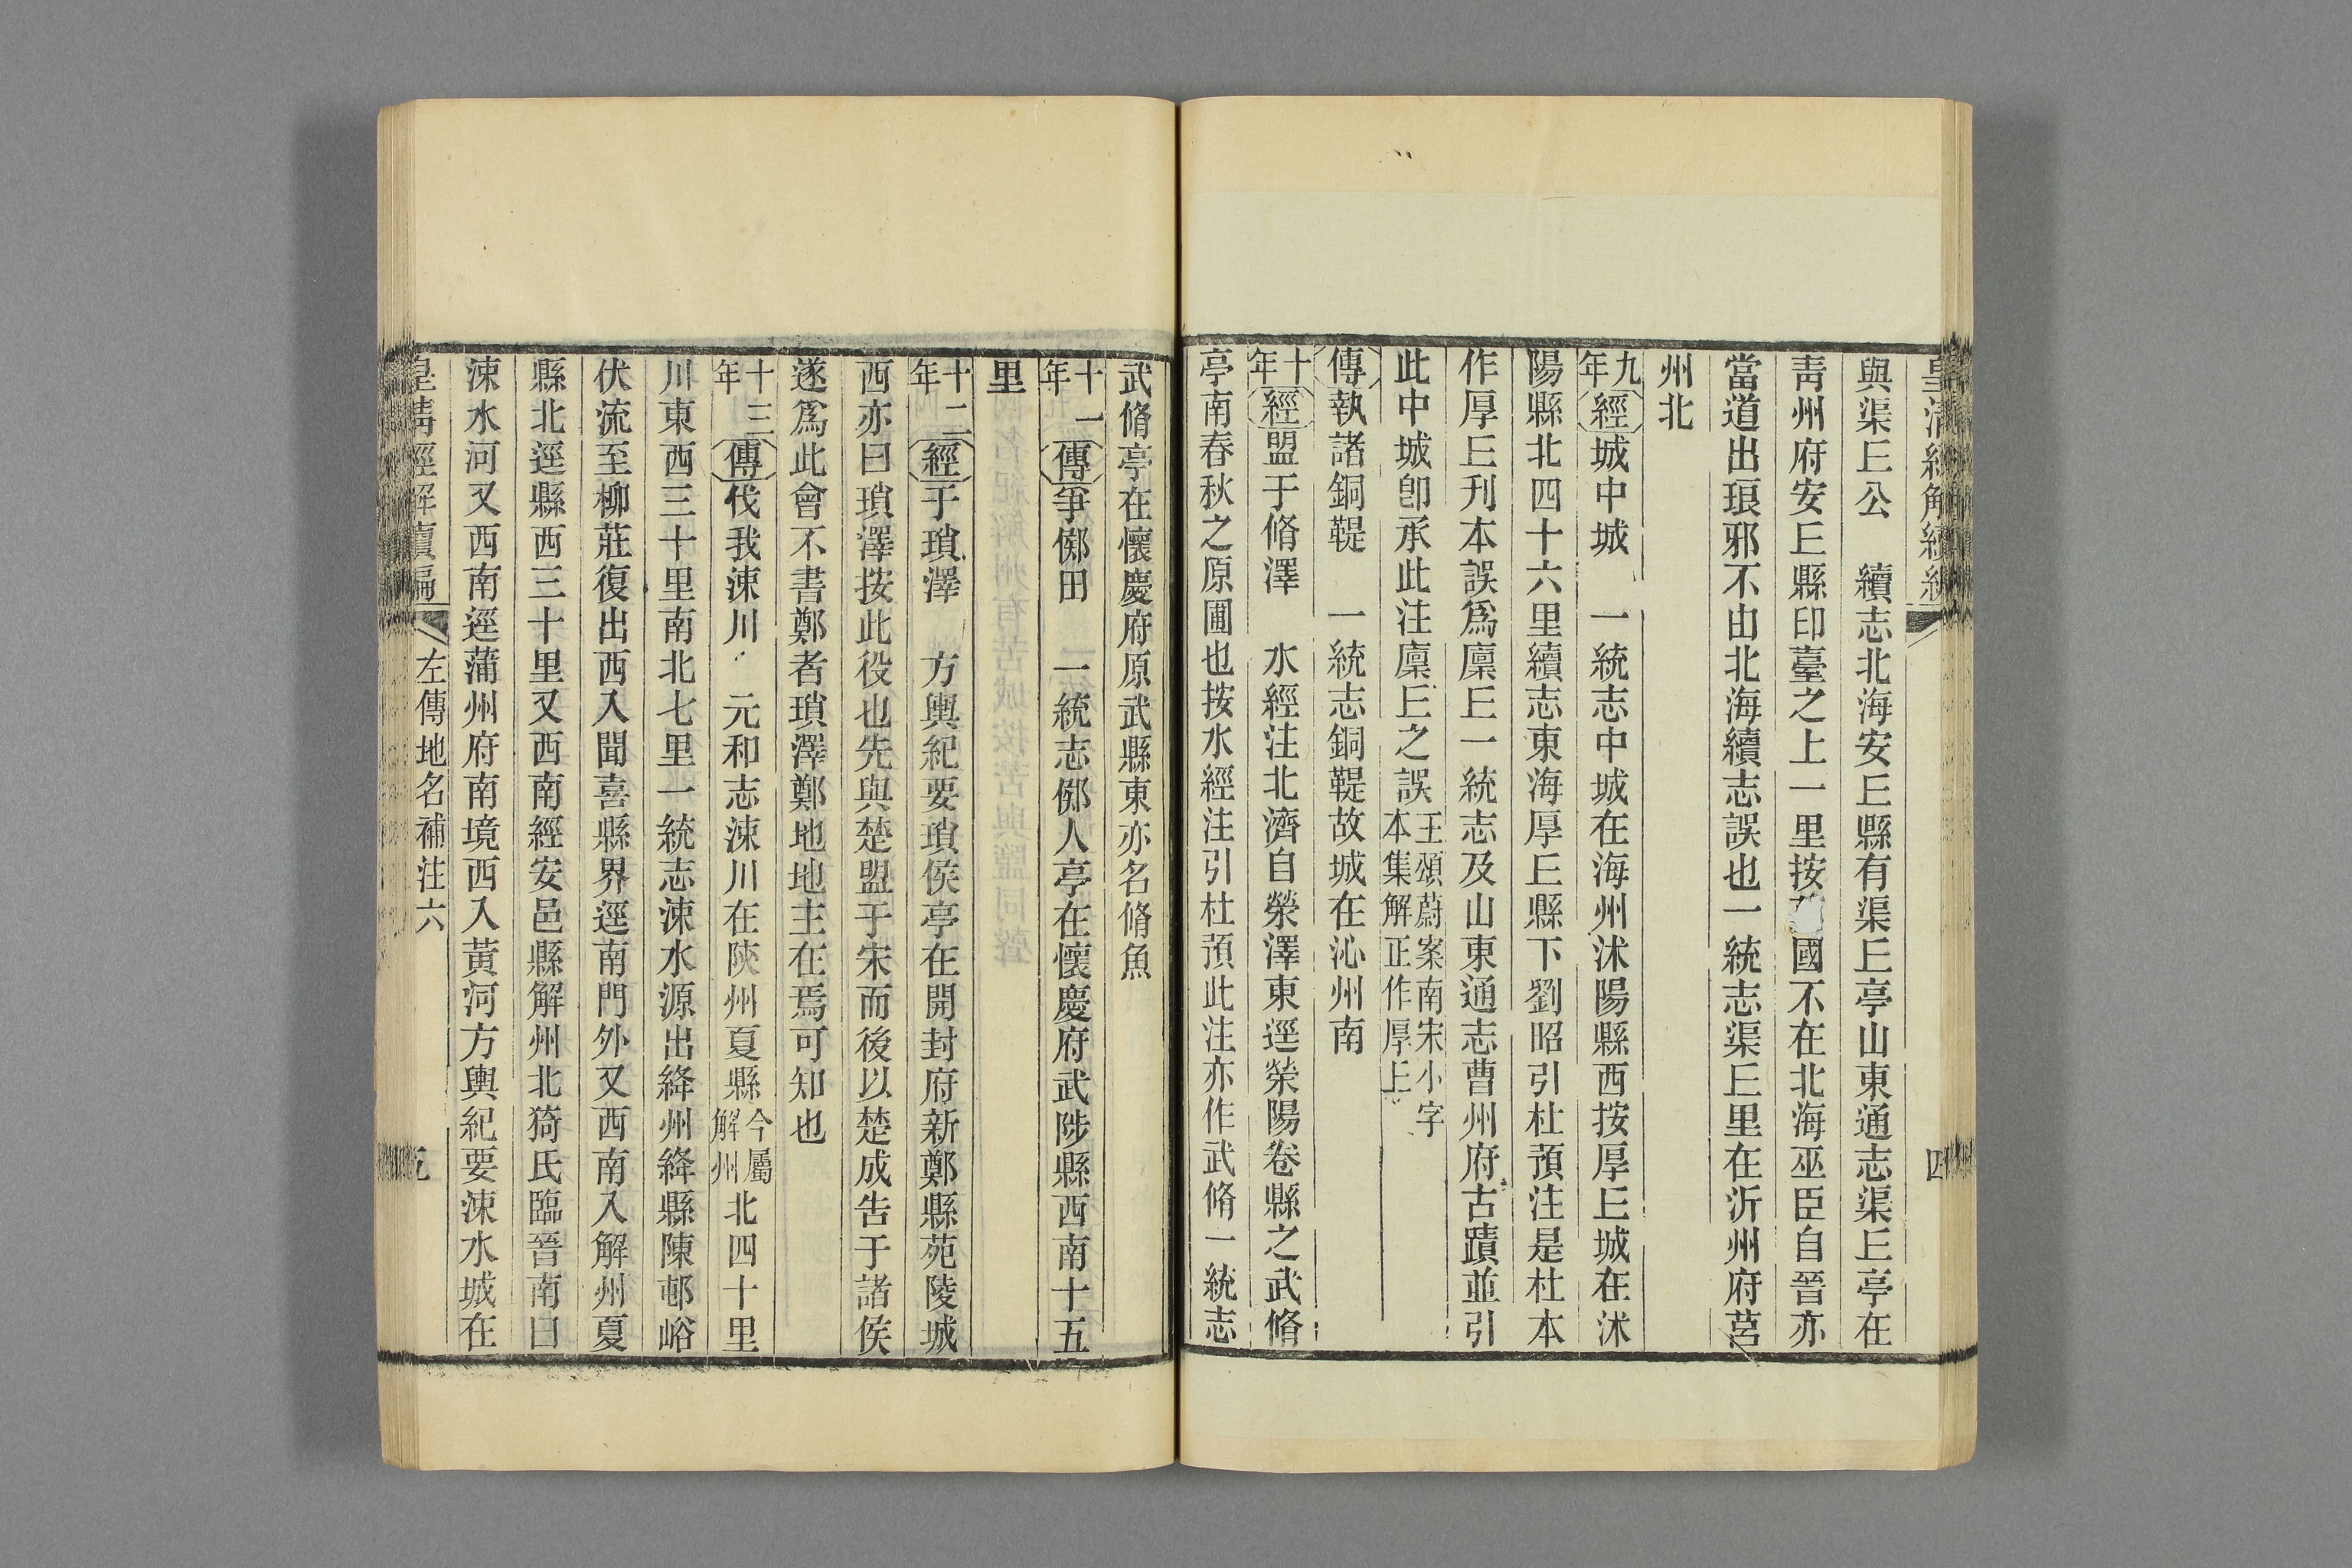 與渠𠀉公　續志北海安𠀉縣有渠𠀉亭山東通志渠𠀉亭在
青州府安𠀉縣印臺之上一里按國不在北海巫臣自晉亦
當道出琅邪不由北海續志誤也一統志渠𠀉里在沂州府莒
州北
九年經城中城　一統志中城在海州沭陽縣西按厚𠀉城在沭
陽縣北四十六里續志東海厚𠀉縣下劉昭引杜預注是杜本
作厚𠀉刊本誤爲廩𠀉一統志及山東通志曹州府古蹟並引
此中城卽承此注廩𠀉之誤王頌蔚案南宋小字本集解正作厚上
傳執諸銅鞮　一統志銅鞮故城在沁州南
十年經盟于脩澤　水經注北濟自滎澤東逕滎陽卷縣之武脩
亭南春秋之原圃也按水經注引杜預此注亦作武脩一統志
武脩亭在懷慶府原武縣東亦名脩魚
十一年傳爭鄇田　一統志鄇人亭在懷慶府武陟縣西南十五
里
十二年經于瑣澤　方輿紀要瑣侯亭在開封府新鄭縣苑陵城
西亦曰瑣澤按此役也先與楚盟于宋而後以楚成吿于諸侯
遂爲此會不書鄭者瑣澤鄭地地主在焉可知也
十三年傳伐我涑川　元和志涑川在陝州夏縣今屬解州北四十里
川東西三十里南北七里一統志涑水源出絳州絳縣陳邨峪
伏流至柳莊復出西入聞喜縣界逕南門外又西南入解州夏
縣北逕縣西三十里又西南經安邑縣解州北猗氏臨晉南曰
涑水河又西南逕蒲州府南境西入黃河方輿紀要涑水城在
皇淸經解續編　左傳地名補注六　五